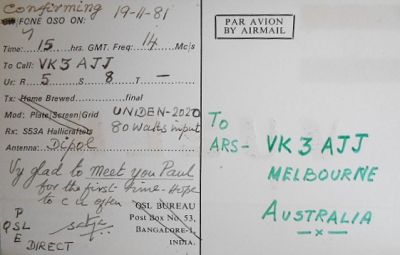 Confirming 19-11-81
FONE QSO ON:
Time: 15 hrs. GMT. Freq: 14 Mc|s
To Call: VK3AJJ
Ur: R 5 S 8 T —
Tx: Home Brewed final
Mod: Plate|Screen|Grid UNIDEN-2020
Rx: S53A Hallicrafters 80 Watts input
Antenna: Dipol
Vy glad to meet you Paul
for the first time - Hope
to c u often
P
QSL
E
DIRECT
QSL BUREAU
Post Box No 53,
BANGALORE-1,
INDIA.
PAR AVION
BY AIRMAIL
To
ARS- VK3AJJ
MELBOURNE
AUSTRALIA
—x—